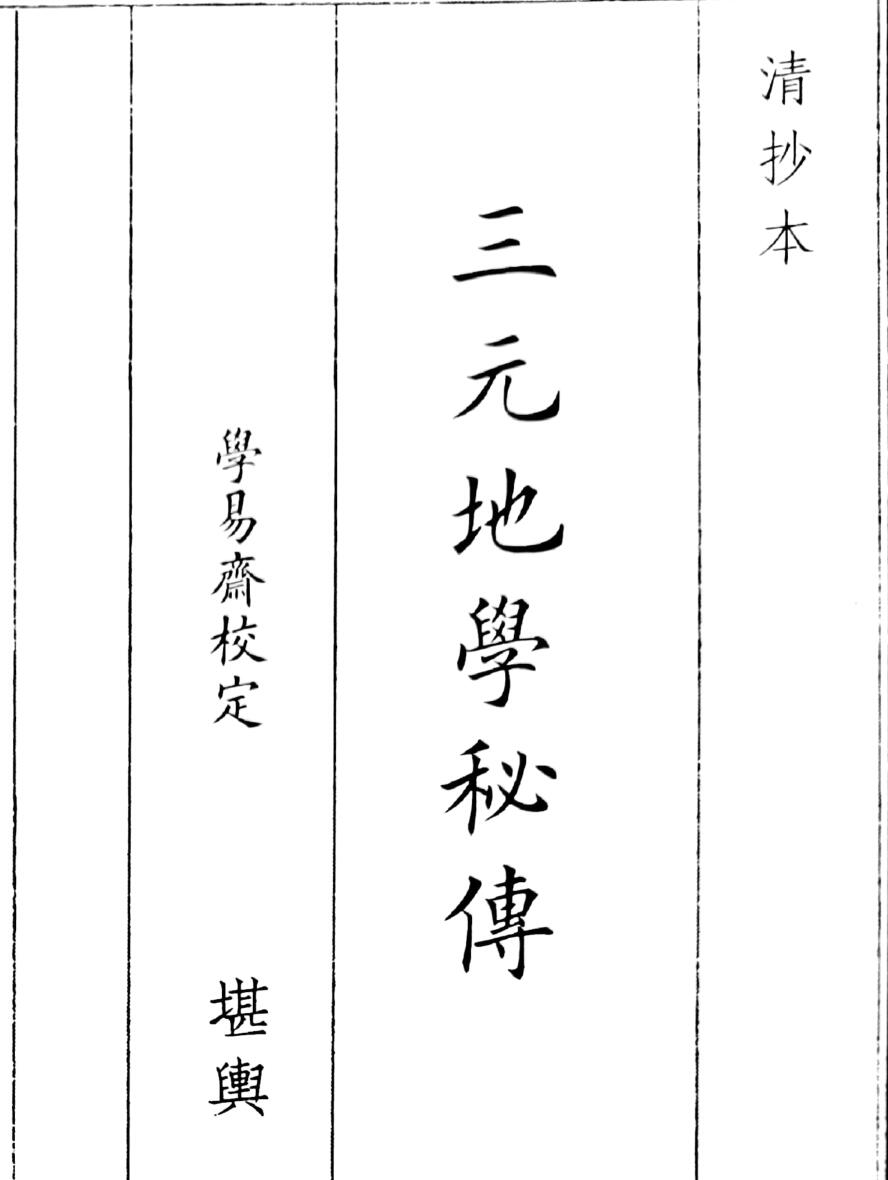 清抄本
三元地學秘傳
學易齋校定
堪輿